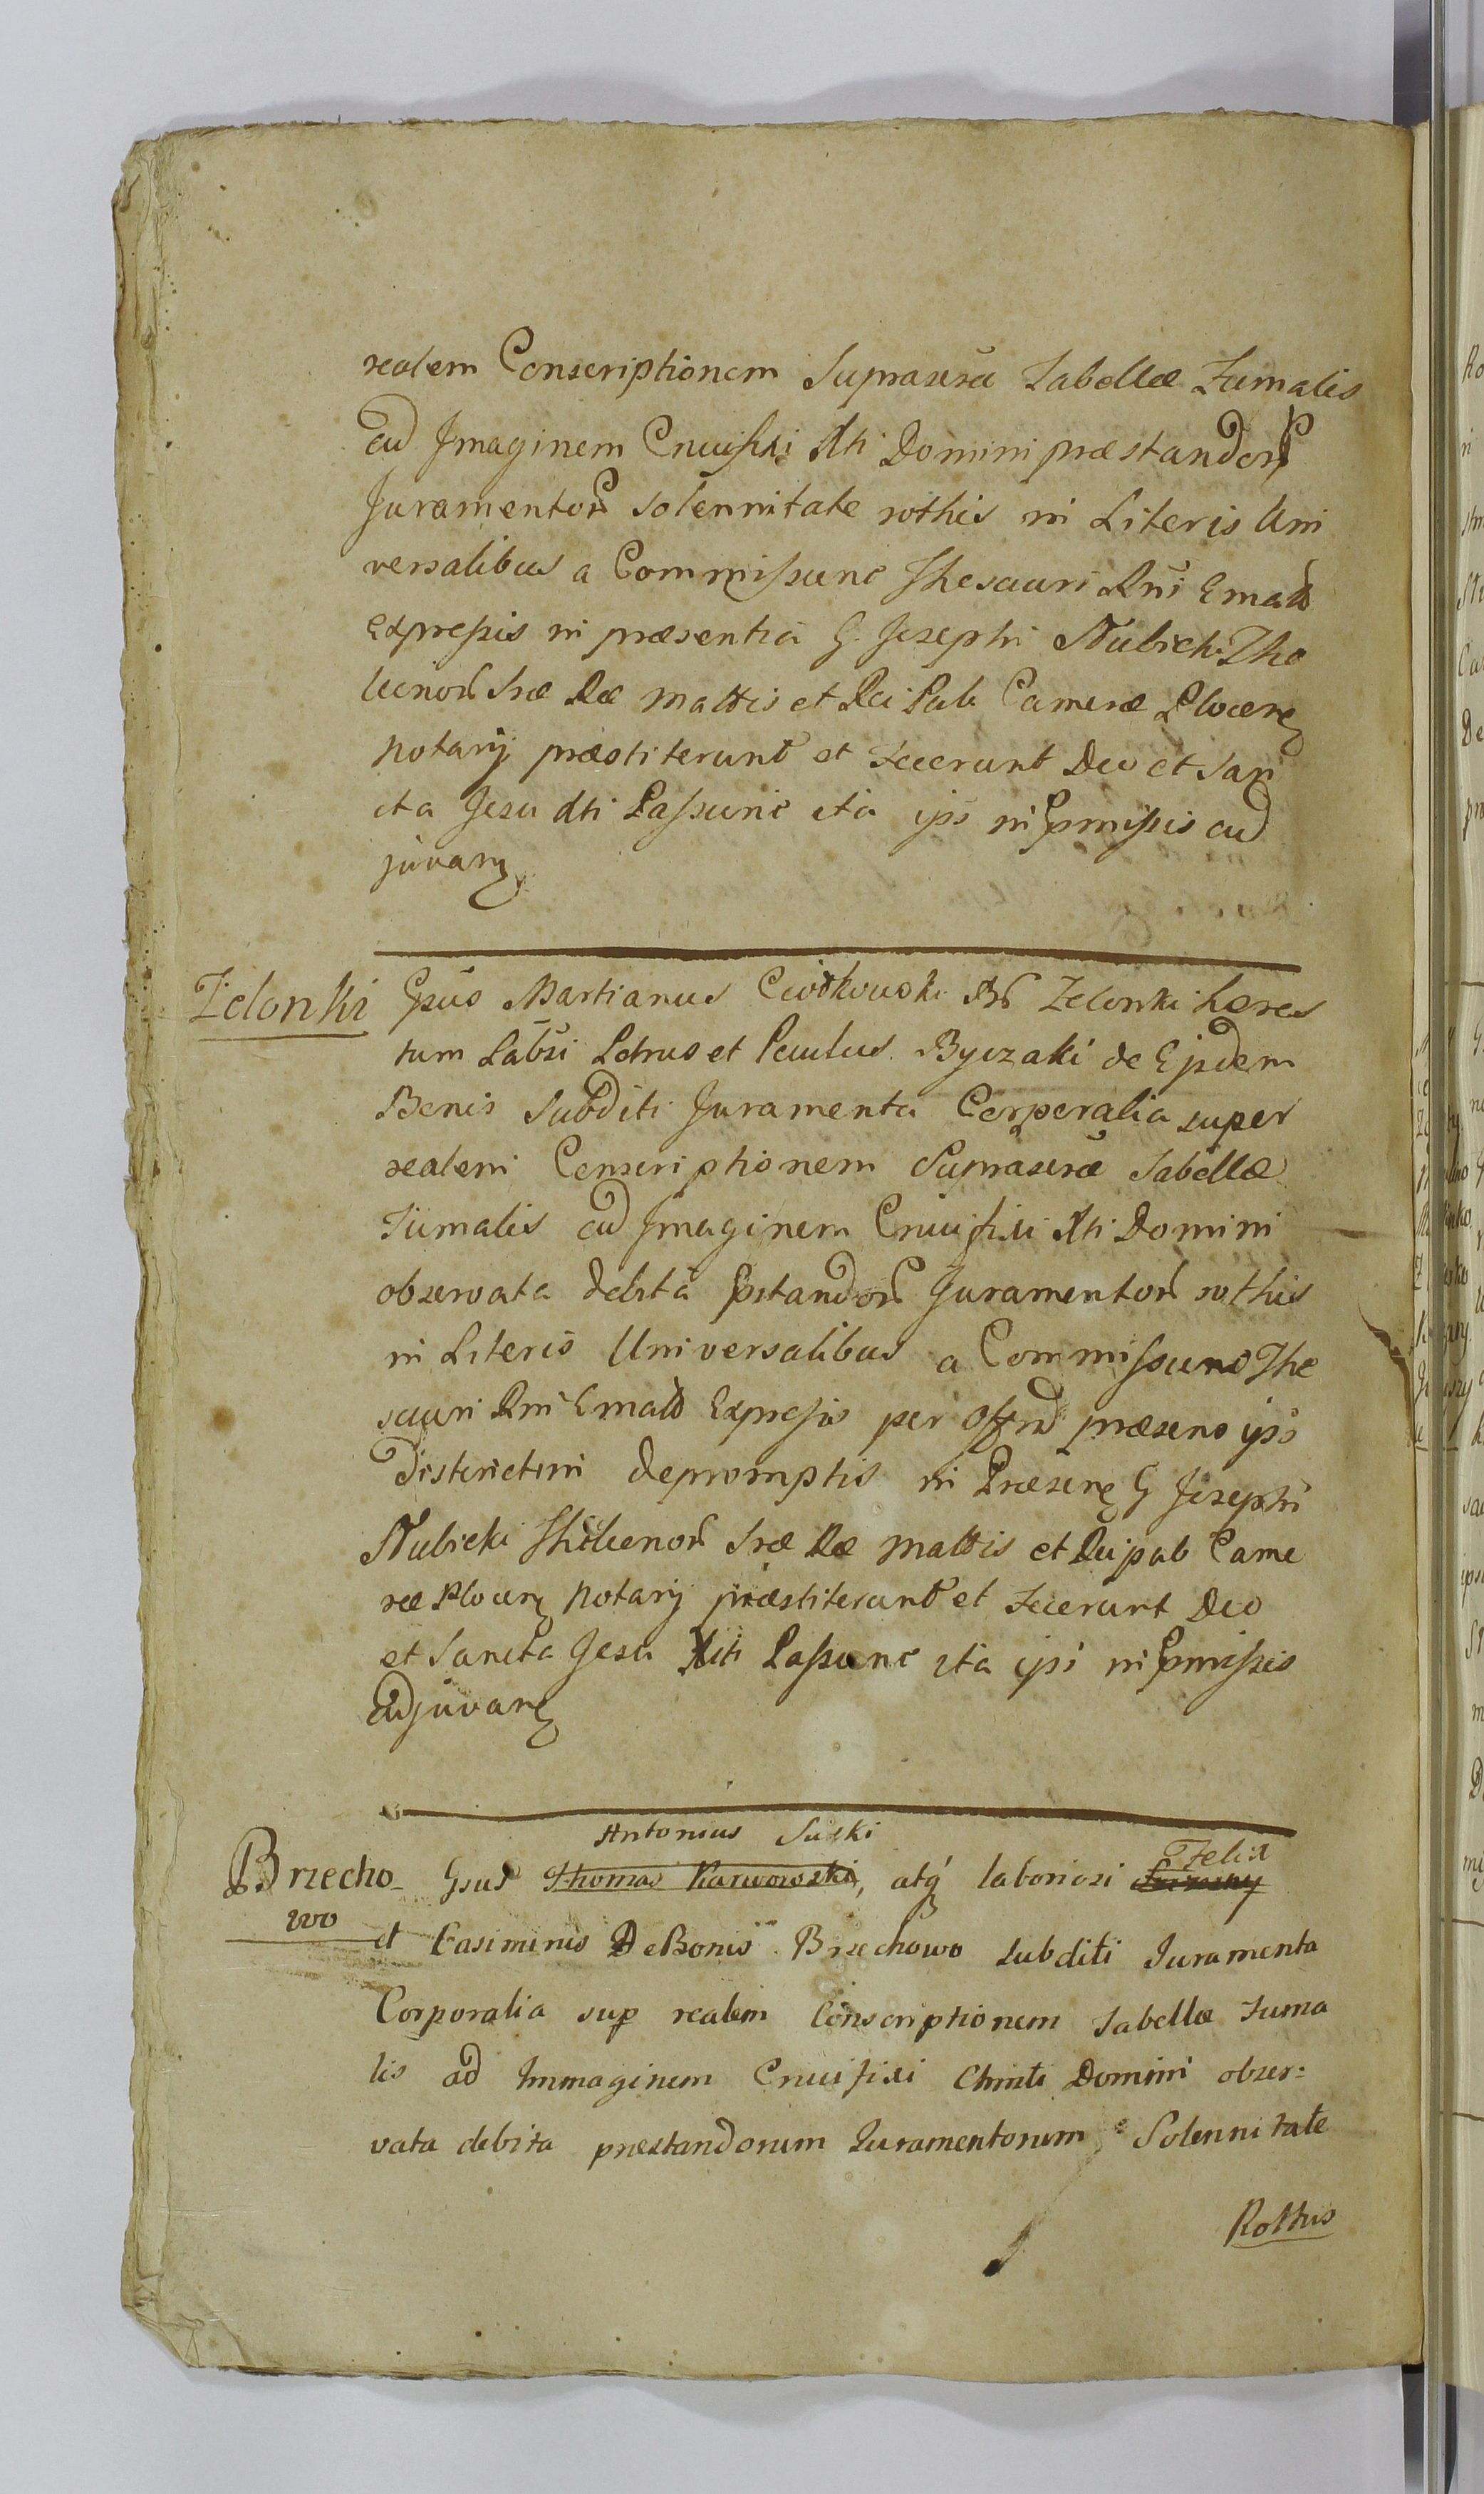 realem Conscriptionem Suprascrã Tabellæ Fumalis
ad Imaginem Crucifixi Xti Domini præstandoꝝ
Juramentoꝝ solennitate rothis in Literis Uni
versalibus a Commissione Thesauri Rñi Emañ
Expressis in præsentia G. Josephi Nubicki The
Sræ Ræ Mattis et Rei Pub Cameræ Plocen
Notarij præstiterunt et fecerunt Deo et San
cta Jesu Xti Passione ita ips in pmissis ad
juvan
Zelonki
Gsus Martianus Ciotkowski Zelonki hæres
tum Labsi Petrus et Paulus Byczaki de Ejsdem
Bonis Subditi Juramenta Corporalia super
realem Conscriptionem Suprascræ Tabellæ
Fumalis ad Imaginem Crucifixi Xti Domini
observata debita pstandoꝝ Juramentoꝝ rothis
in Literis Universalibus a Commissione The
sauri Rñi Emañ Expressis per Offm præsens ips
Districtim depromptis in Præsen G Josephi
Nubicki Sræ Ræ Mattis et Rei pub Came
ræ Plocen Notarij præstiterunt et fecerunt Deo
et Sancta Jesu Xti Passione ita ipsi in pmissis
adjuvan
Antonius Suski
Felix
Brzecho- Gsus Thomas Karwowski, atq laboriosi
wo
et Casimirus De Bonis Brzechowo subditi Juramenta
Corporalia sup realem Conscriptionem Tabellæ Fuma
lis ad Immaginem Crucifixi Christi Domini obser=
vata debita præstandorum Juramentorum Solennitate
Rothis